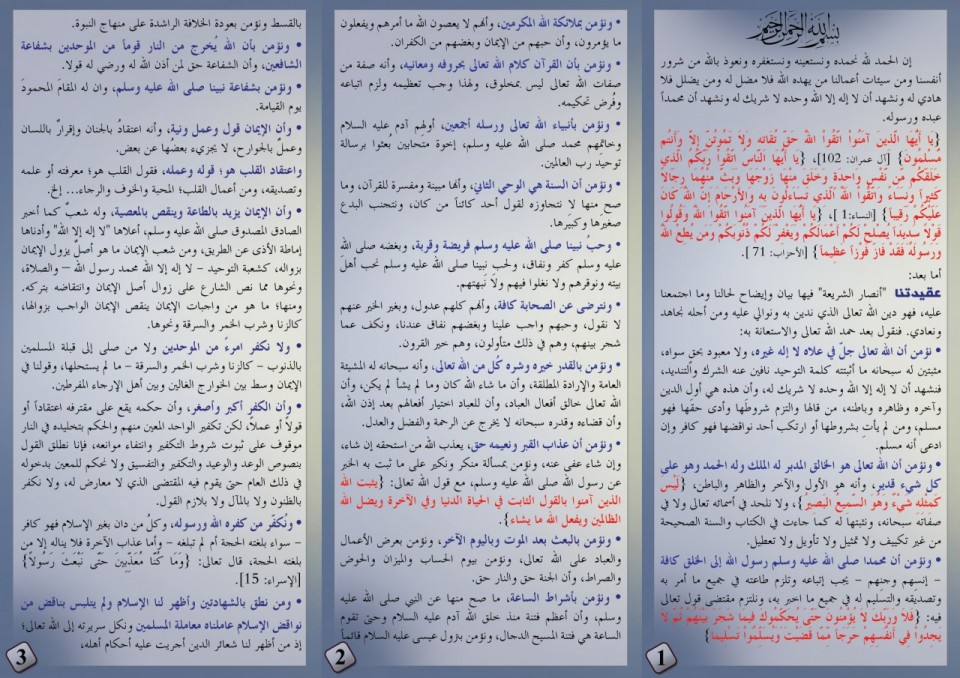 بسم الله الرحمن الرحيم
إن الحمد لله نحمده ونستعينه ونستغفره ونعوذ بالله من شرور
أنفسنا ومن سيئات أعمالنا من يهده الله فلا مضل له ومن يضلل فلا
هادي له ونشهد أن لا إله إلا الله وحده لا شريك له ونشهد أن محمداً
عبده ورسوله.
{يَا أَيُّهَا الَّذِينَ آمَنُواْ اتَّقُواْ اللّهَ حَقَّ تُقَاتِهِ وَلاَ تَمُوتُنَّ إِلاَّ وَأَنتُم
مُّسْلِمُونَ} [آل عمران: 102]، {يَا أَيُّهَا النَّاسُ اتَّقُواْ رَبَّكُمُ الَّذِي
خَلَقَكُم مِّن نَّفْسٍ وَاحِدَةٍ وَخَلَقَ مِنْهَا زَوْجَهَا وَبَثَّ مِنْهُمَا رِجَالاً
كَثِيراً وَنِسَاء وَاتَّقُواْ اللّهَ الَّذِي تَسَاءلُونَ بِهِ وَالأَرْحَامَ إِنَّ اللّهَ كَانَ
عَلَيْكُمْ رَقِيباً} [النساء:1]، {يَا أَيُّهَا الَّذِينَ آمَنُوا اتَّقُوا اللَّهَ وَقُولُوا
قَوْلاً سَدِيداً يُصْلِحْ لَكُمْ أَعْمَالَكُمْ وَيَغْفِرْ لَكُمْ ذُنُوبَكُمْ وَمَن يُطِعْ اللَّهَ
وَرَسُولَهُ فَقَدْ فَازَ فَوْزاً عَظِيماً} [الأحزاب: 71].
أما بعد:
عقيدتنا "أنصار الشريعة" فيها بيان وإيضاح لحالنا وما اجتمعنا
عليه، فهو دين الله تعالى الذي ندين به ونوالي عليه ومن أجله نجاهد
ونعادي. فنقول بعد حمد الله تعالى والاستعانة به:
• نؤمن أن الله تعالى جلّ في علاه لا إله غيره، ولا معبود بحق سواه،
مثبتين له سبحانه ما أثبتته كلمة التوحيد نافين عنه الشرك والتنديد،
فنشهد أن لا إله إلا الله وحده لا شريك له، وأن هذه هي أول الدين
وآخره وظاهره وباطنه، من قالها والتزم شروطَها وأدى حقَّها فهو
مسلم، ومن لم يأت بشروطها أو ارتكب أحد نواقضها فهو كافر وإن
ادعى أنه مسلم.
• ونؤمن أن الله تعالى هو الخالق المدبر له الملك وله الحمد وهو على
كل شيء قدير، وأنه هو الأول والآخر والظاهر والباطن، {لَيْسَ
كَمِثْلِهِ شَيْءٌ وَهُوَ السَّمِيعُ البَصِيرُ}، ولا نلحد في أسمائه تعالى ولا في
صفاته سبحانه، ونثبتها له كما جاءت في الكتاب والسنة الصحيحة
من غير تكييف ولا تمثيل ولا تأويل ولا تعطيل.
• ونؤمن أن محمدا صلى الله عليه وسلم رسول الله إلى الخلق كافة
- إنسهم وجنهم - يجب إتباعه وتلزم طاعته في جميع ما أمر به
وتصديقه والتسليم له في جميع ما اخبر به، ونلتزم مقتضى قول تعالى
فيه: {فَلاَ وَرَبِّكَ لاَ يُؤْمِنُونَ حَتَّىَ يُحَكِّمُوكَ فِيمَا شَجَرَ بَيْنَهُمْ ثُمَّ لاَ
يَجِدُواْ فِي أَنفُسِهِمْ حَرَجاً مِّمَّا قَضَيْتَ وَيُسَلِّمُواْ تَسْلِيماً}
1
• ونؤمن بملائكة الله المكرمين، وأنهم لا يعصون الله ما أمرهم ويفعلون
ما يؤمرون، وأن حبهم من الإيمان وبغضهم من الكفران.
• ونؤمن بأن القرآن كلام الله تعالى بحروفه ومعانيه، وأنه صفة من
صفات الله تعالى ليس بمخلوق، ولهذا وجب تعظيمه ولزم اتباعه
وفُرض تحكيمه.
• ونؤمن بأنبياء الله تعالى ورسله أجمعين، أولهم آدم عليه السلام
وخاتمهم محمد صلى الله عليه وسلم، إخوة متحابين بعثوا برسالة
توحيد رب العالمين.
• ونؤمن أن السنة هي الوحي الثاني، وأنها مبينة ومفسرة للقرآن، وما
صح منها لا نتجاوزه لقول أحد كائناً من كان، ونتجنب البدع
صغيرَها وكبيرَها.
• وحب نبينا صلى الله عليه وسلم فريضة وقربة، وبغضه صلى الله
عليه وسلم كفر ونفاق، ولحب نبينا صلى الله عليه وسلم نحب أهل
بيته ونوقرهم ولا نغلوا فيهم ولا نَبهتهم.
• ونترضى عن الصحابة كافة، وأنهم كلهم عدول، وبغير الخير عنهم
لا نقول، وحبهم واجب علينا وبغضهم نفاق عندنا، ونكف عما
شجر بينهم، وهم في ذلك متأولون، وهم خير القرون.
• ونؤمن بالقدر خيره وشره كُل من الله تعالى، وأنه سبحانه له المشيئة
العامة والإرادة المطلقة، وأن ما شاء الله كان وما لم يشأ لم يكن، وأن
الله تعالى خالق أفعال العباد، وأن للعباد اختيار أفعالهم بعد إذن الله،
وأن قضاءه وقدره سبحانه لا يخرج عن الرحمة والفضل والعدل.
• ونؤمن أن عذاب القبر ونعيمه حق، يعذب الله من استحقه إن شاء،
وإن شاء عفى عنه، ونؤمن بمسألة منكر ونكير على ما ثبت به الخبر
عن رسول الله صلى الله عليه وسلم، مع قول الله تعالى: {يثبت الله
الذين آمنوا بالقول الثابت في الحياة الدنيا وفي الآخرة ويضل الله
الظالمين ويفعل الله ما يشاء}.
• ونؤمن بالبعث بعد الموت وباليوم الآخر، ونؤمن بعرض الأعمال
والعباد على الله تعالى، ونؤمن بيوم الحساب والميزان والحوض
والصراط، وأن الجنة حق والنار حق.
• ونؤمن بأشراط الساعة، ما صح منها عن النبي صلى الله عليه
وسلم، وأن أعظم فتنة منذ خلق الله آدم عليه السلام وحتى تقوم
الساعة هي فتنة المسيح الدجال، ونؤمن بنزول عيسى عليه السلام قائماً
2
بالقسط ونؤمن بعودة الخلافة الراشدة على منهاج النبوة.
• ونؤمن بأن الله يُخرج من النار قوماً من الموحدين بشفاعة
الشافعين، وأن الشفاعة حق لمن أذن الله له ورضي له قولا.
• ونؤمن بشفاعة نبينا صلى الله عليه وسلم، وان له المقامَ المحمودَ
يوم القيامة.
• وأن الإيمان قول وعمل ونية، وأنه اعتقادٌ بالجنان وإقرارٌ باللسان
وعملٌ بالجوارح، لا يجزيء بعضُها عن بعض.
واعتقاد القلب هو: قوله وعمله، فقول القلب هو: معرفته أو علمه
وتصديقه، ومن أعمال القلب؛ المحبة والخوف والرجاء... إلخ.
• وأن الإيمان يزيد بالطاعة وينقص بالمعصية، وله شعبٌ كما أخبر
الصادق المصدوق صلى الله عليه وسلم، أعلاها "لا إله إلا الله" وأدناها
إماطة الأذى عن الطريق، ومن شعب الإيمان ما هو أصلٌ يزول الإيمان
بزواله، كشعبة التوحيد - لا إله إلا الله محمد رسول الله - والصلاة،
ونحوها مما نص الشارع على زوال أصل الإيمان وانتقاضه بتركه.
ومنها؛ ما هو من واجبات الإيمان ينقص الإيمان الواجب بزوالها،
كالزنا وشرب الخمر والسرقة ونحوها.
• ولا نكفر امرءً من الموحدين ولا من صلى إلى قبلة المسلمين
بالذنوب - كالزنا وشرب الخمر والسرقة - ما لم يستحلها، وقولنا في
الإيمان وسط بين الخوارج الغالين وبين أهل الإرجاء المفرطين.
• وأن الكفر أكبر وأصغر، وأن حكمه يقع على مقترفه اعتقاداً أو
قولاً أو عملاً، لكن تكفير الواحد المعين منهم والحكم بتخليده في النار
موقوف على ثبوت شروط التكفير وانتفاء موانعه، فإنا نطلق القول
بنصوص الوعد والوعيد والتكفير والتفسيق ولا نحكم للمعين بدخوله
في ذلك العام حتى يقوم فيه المقتضى الذي لا معارض له، ولا نكفر
بالظنون ولا بالمآل ولا بلازم القول.
• ونُكفّر من كفره الله ورسوله، وكلُ من دان بغير الإسلام فهو كافر
- سواء بلغته الحجة أم لم تبلغه - وأما عذاب الآخرة فلا يناله إلا من
بلغته الحجة، قال تعالى: {وَمَا كُنَّا مُعَذِّبِينَ حَتَّى نَبْعَثَ رَسُولاً}
[الإسراء: 15].
• ومن نطق بالشهادتين وأظهر لنا الإسلام ولم يتلبس بناقض من
نواقض الإسلام عاملناه معاملة المسلمين ونكل سريرته إلى الله تعالى؛
إذ من أظهر لنا شعائر الدين أجريت عليه أحكام أهله،
3